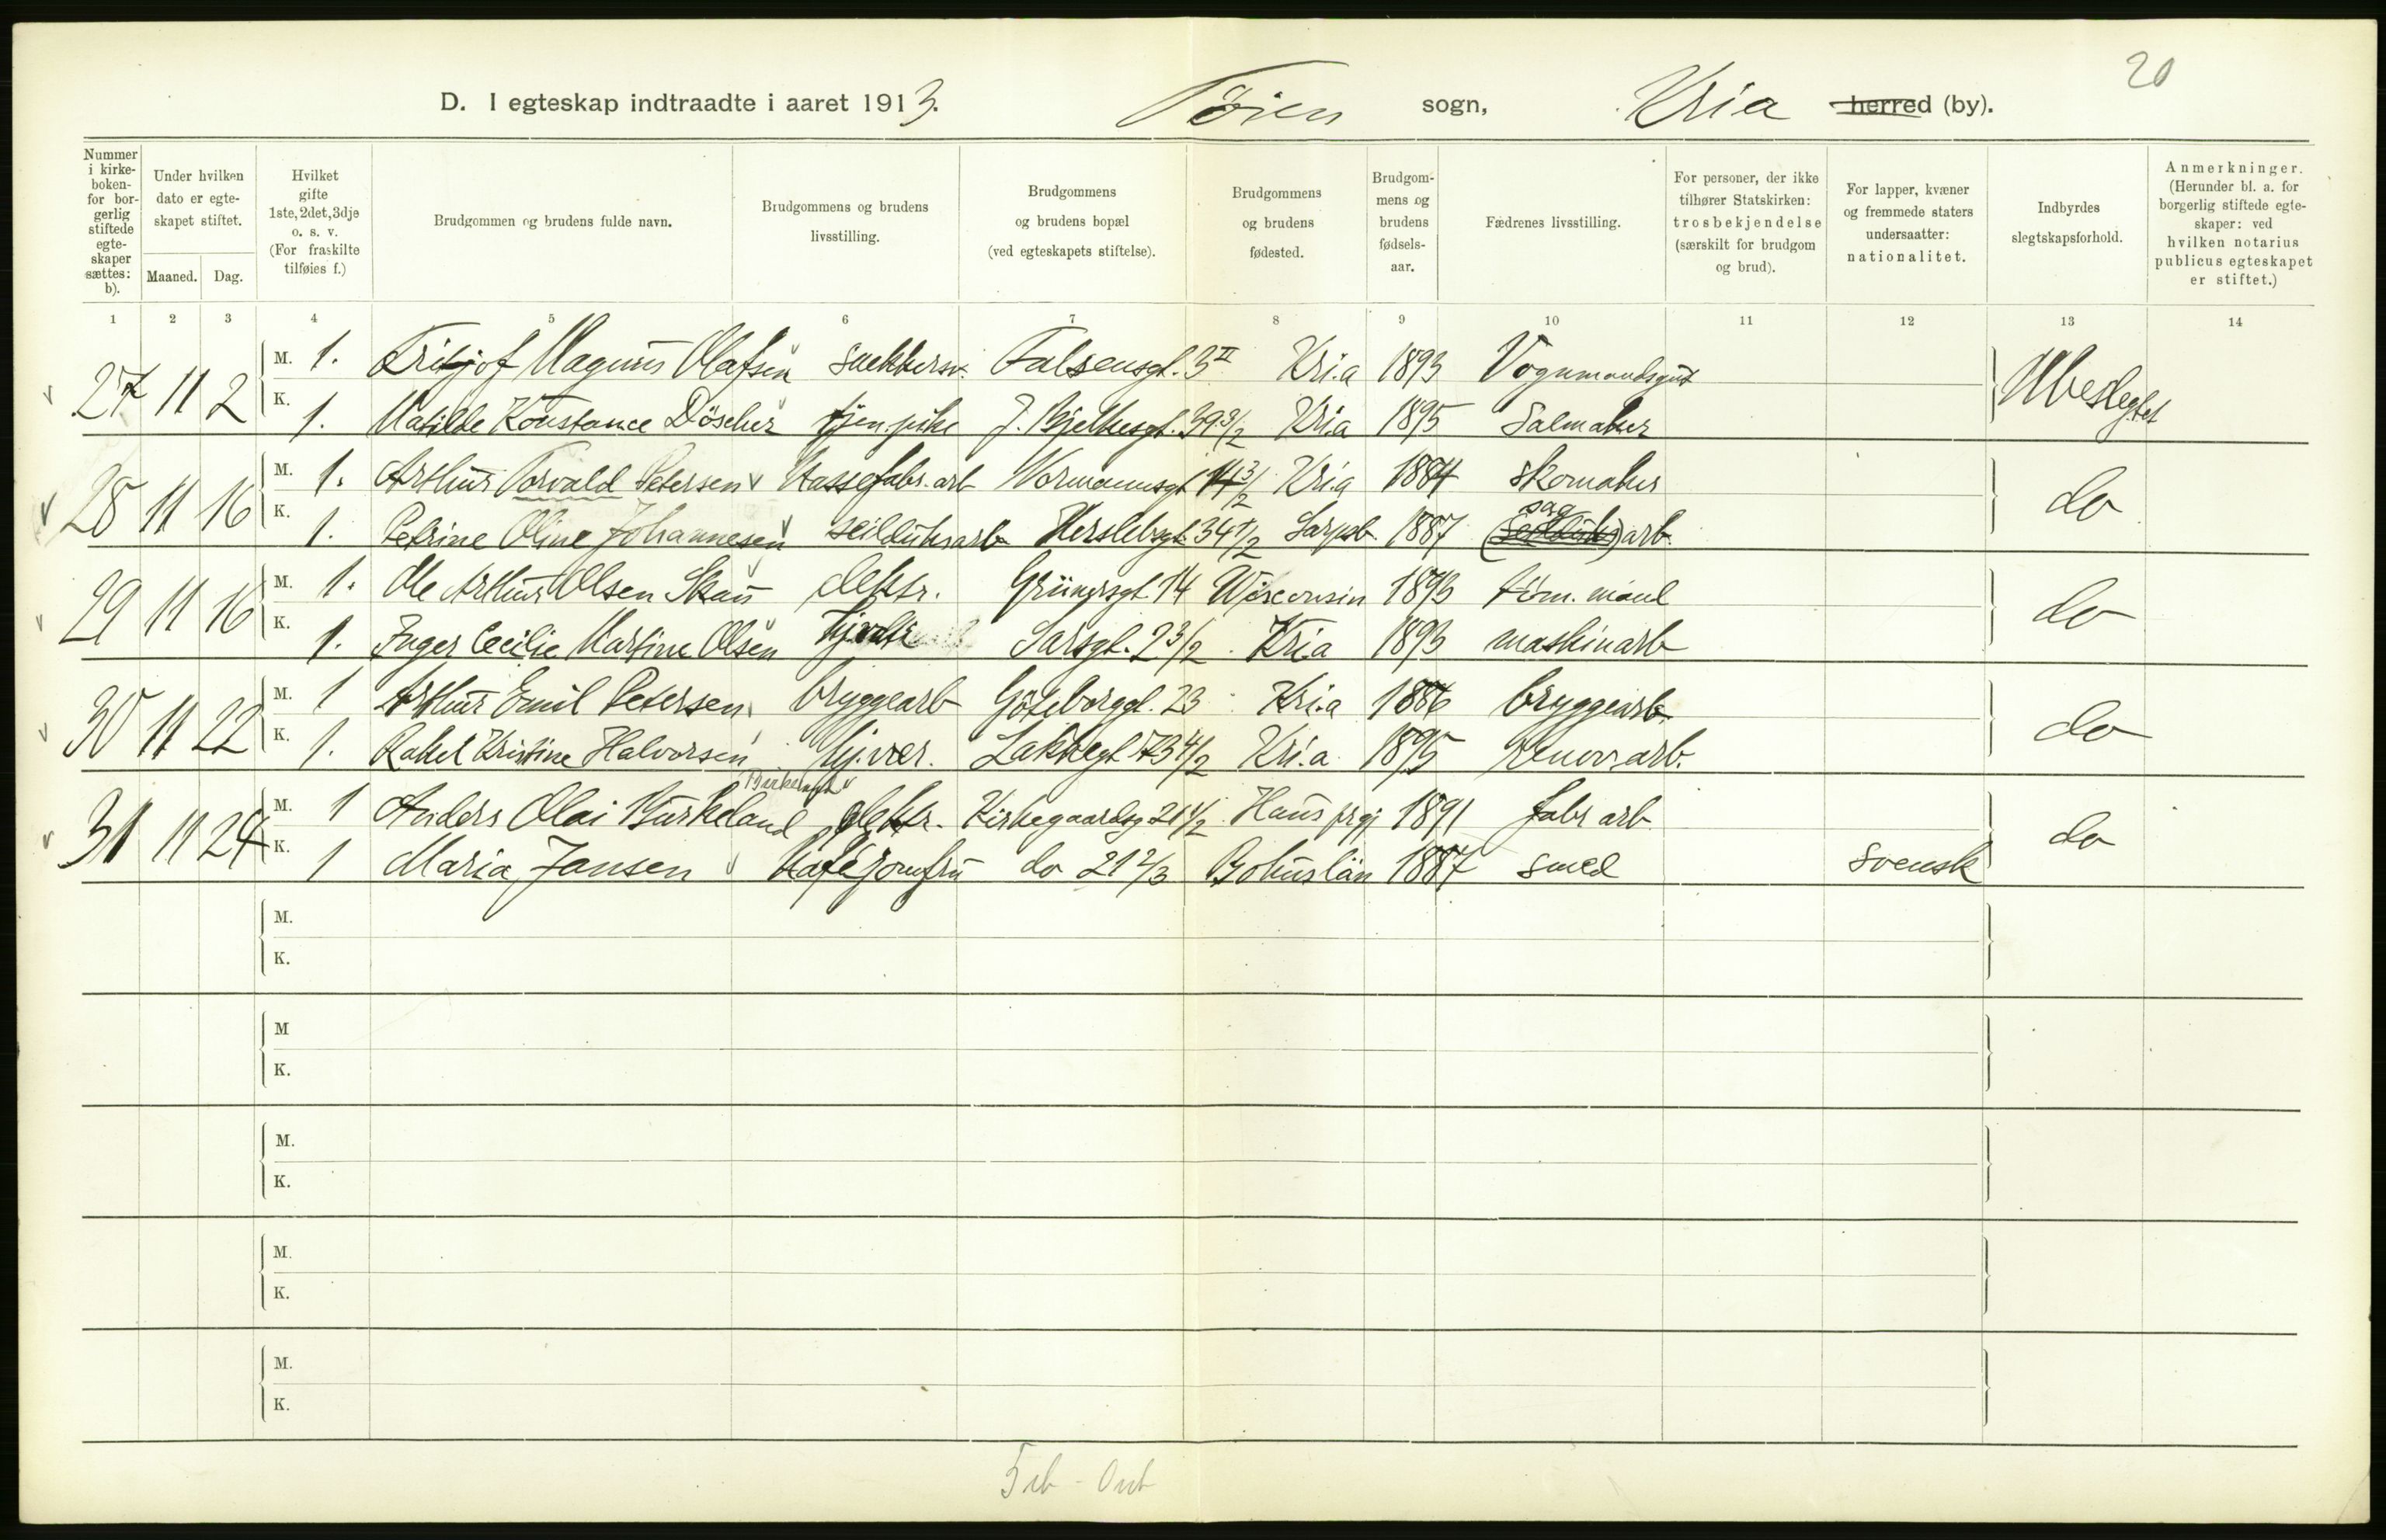 20
D. I egteskap indtraadte i aaret 1913. Töien sogn, Kria herred (by).
Nummer i kirke-boken- for bor-gerlig stiftede egte-skaper sættes: b).
Under hvilken dato er egte-skapet stiftet.
Maaned. Dag.
Hvilket gifte 1ste, 2det, 3dje o. s. v. (For fraskilte tilføies f.)
Brudgommen og brudens fulde navn.
Brudgommens og brudens livsstilling.
Brudgommens og brudens bopæl (ved egteskapets stiftelse).
Brudgommens og brudens fødested.
Brudgom-mens og brudens fødsels-aar.
Fædrenes livsstilling.
For personer, der ikke tilhører Statskirken: trosbekjendelse (særskilt for brudgom og brud).
For lapper, kvæner og fremmede staters undersaatter: nationalitet.
Indbyrdes slegtskapsforhold.
Anmerkninger. (Herunder bl. a. for borgerlig stiftede egte-skaper: ved hvilken notarius publicus egteskapet er stiftet.)
1 2 3 4 5 6 7 8 9 10 11 12 13 14
27 11 2 M. 1. Fritjof Magnus Olafsen snekkersv. Falsensgt. 3 II Kria 1893 Vognmandsgut Ubeslegtet
K. 1. Matilde Konstance Döscher tjen.pike J. Bjelkesgt. 39 3/2 Kria 1895 Salmaker
28 11 16 M. 1. Arthur Torvald Petersen Kassefabr.arb Normannsgt 14 3/2 Kria 1884 skomaker do
K. 1. Petrine Oline Johannesen seilduksarb Herslebsgt 34 1/2 Sarpsb. 1887 sag arb.
29 11 16 M. 1. Ole Arthur Olsen Skau elektr. Grünersgt 14 Wisconsin 1893 töm. mand do
K. 1. Inger Cecilie Martine Olsen Sarsgt. 2 3/2 Kria 1893 maskinarb
30 11 22 M. 1 Arthur Emil Petersen bryggearb Göteborggt. 23 Kria 1886 bryggearb. do
K. 1. Rakel Kristine Halvorsen hj.vær. Lakkegt 73 4/2 Kria 1895 renov.arb.
Birkeland
31 11 24 M. 1 Anders Olai Burkeland elektr. Kirkegaardsg 21 4/2 Haus prgj 1891 fabr arb do
K. 1 Maria Jansen Kaféjomfru do 21 2/3 Bohuslän 1887 smed svensk
M.
K.
M
K.
M.
K.
M.
K.
M.
K.